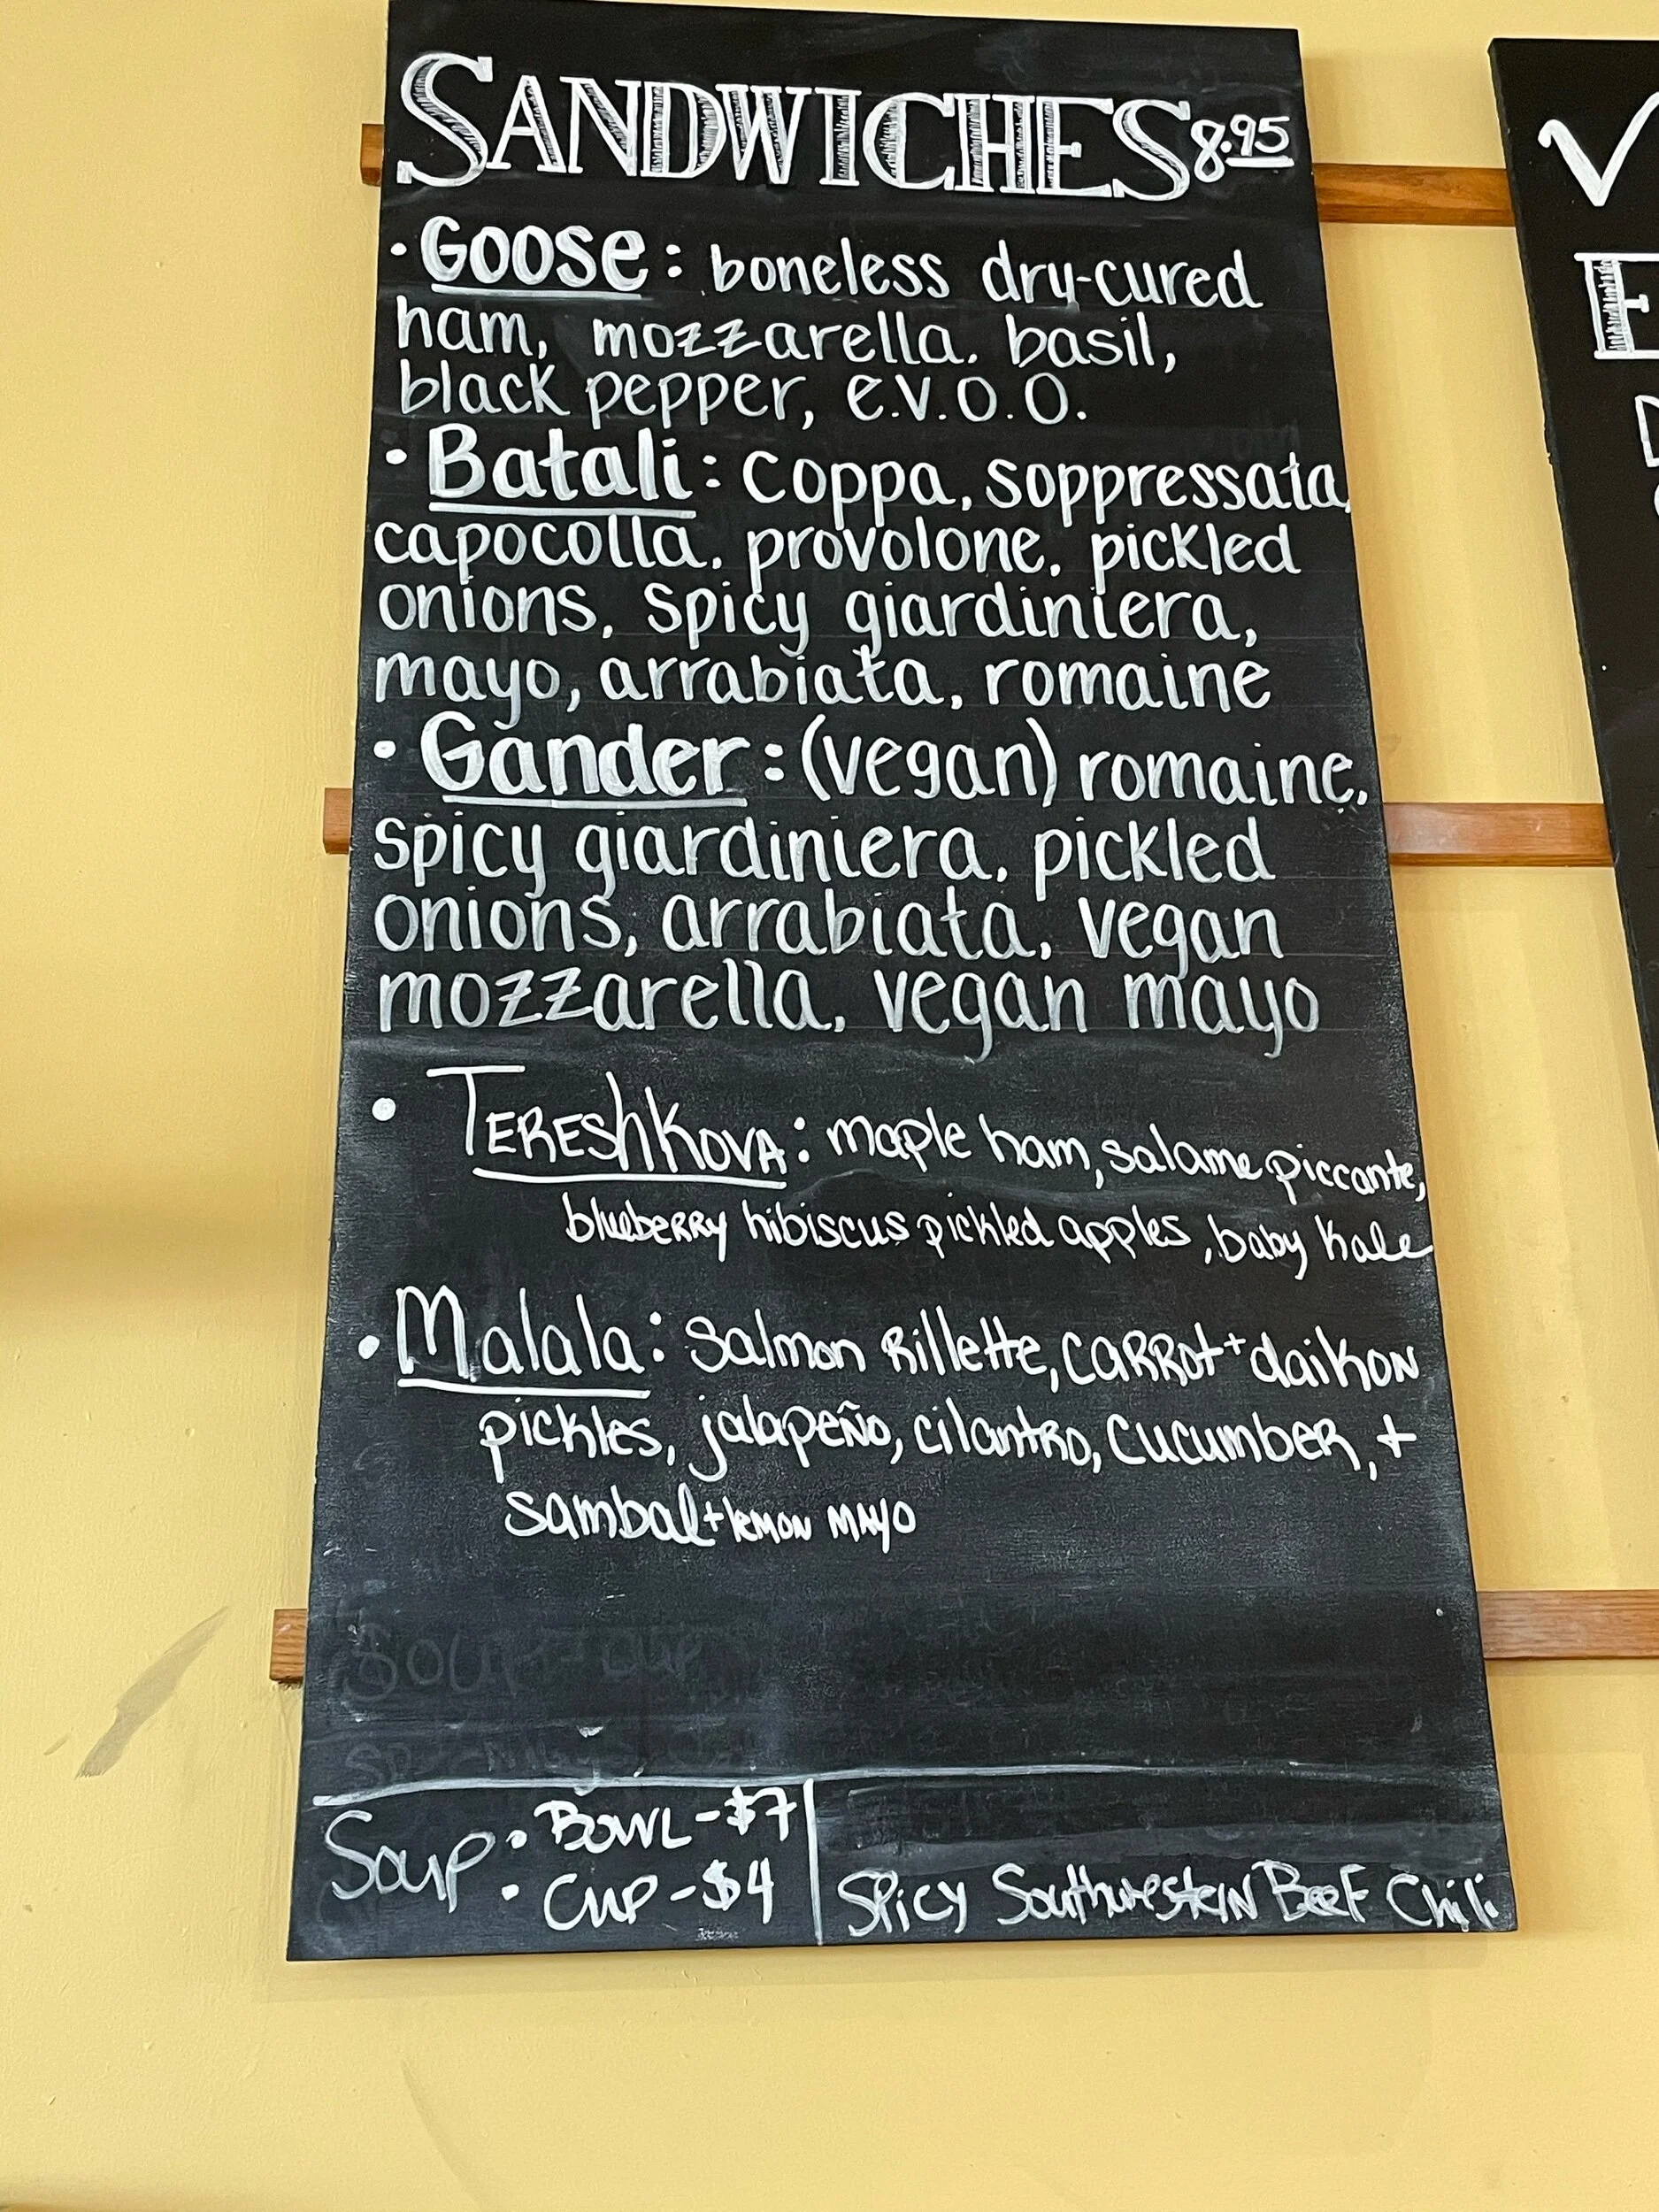 SANDWICHES 8.95
• Goose: boneless dry-cured
ham, mozzarella. basil,
black pepper, e.v.o.o.
• Batali: coppa, soppressata,
capocolla. provolone. pickled
onions. spicy giardiniera,
mayo, arrabiata. romaine
• Gander: (vegan) romaine.
spicy giardiniera. pickled
onions, arrabiata. vegan
mozzarella. vegan mayo
• TEREShKOVA: maple ham, salame piccante,
blueberry hibiscus pickled apples, baby kale
• Malala: Salmon Rillette, CARROt + daikon
pickles, jalapeño, cilantro, cucumber, +
sambal + lemon MAYO
SOUP - cup
Soup • BOWL - $7
• CUP - $4
SPicy Southwestern Beef Chili